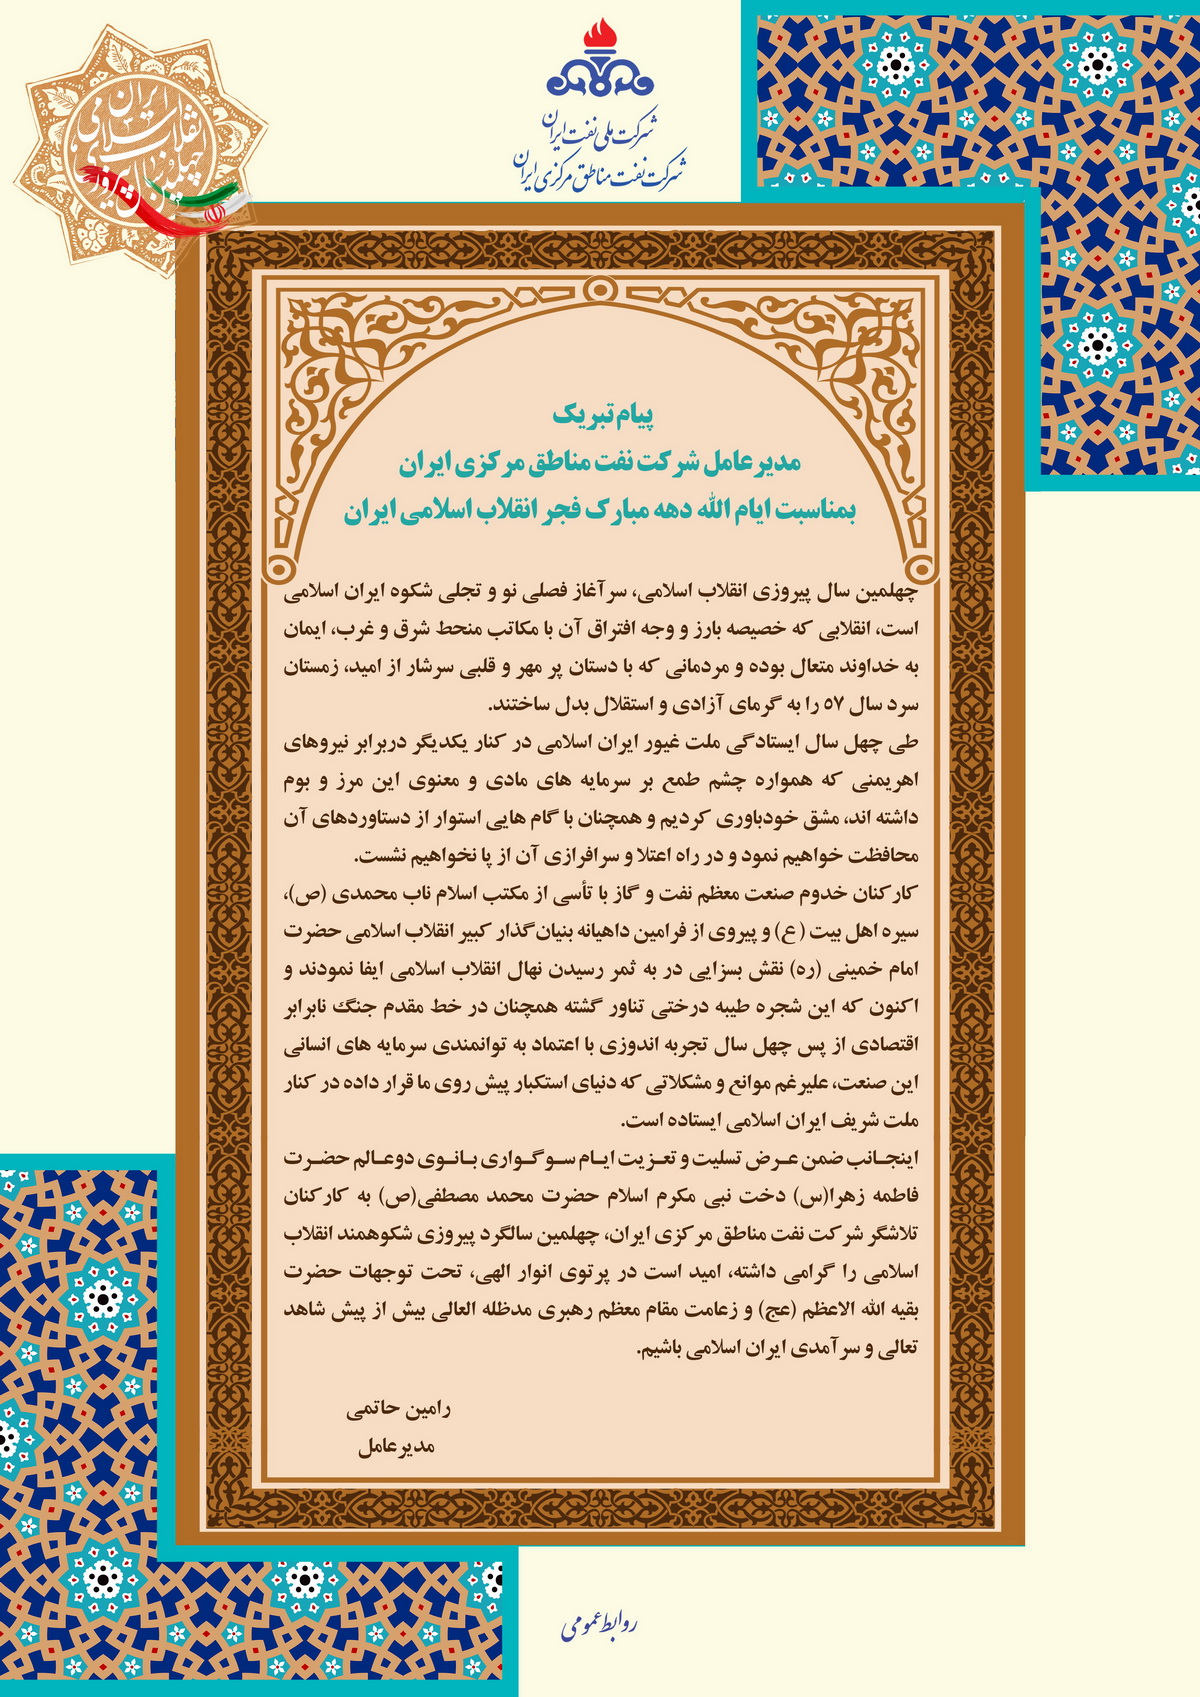 شرکت ملی نفت ایران
شرکت نفت مناطق مرکزی ایران
پیام تبریک
مدیرعامل شرکت نفت مناطق مرکزی ایران
بمناسبت ایام الله دهه مبارک فجر انقلاب اسلامی ایران
چهلمین سال پیروزی انقلاب اسلامی، سرآغاز فصلی نو و تجلی شکوه ایران اسلامی
است، انقلابی که خصیصه بارز و وجه افتراق آن با مکاتب منحط شرق و غرب، ایمان
به خداوند متعال بوده و مردمانی که با دستان پر مهر و قلبی سرشار از امید، زمستان
سرد سال ۵۷ را به گرمای آزادی و استقلال بدل ساختند.
طی چهل سال ایستادگی ملت غیور ایران اسلامی در کنار یکدیگر دربرابر نیروهای
اهریمنی که همواره چشم طمع بر سرمایه های مادی و معنوی این مرز و بوم
داشته اند، مشق خودباوری کردیم و همچنان با گام هایی استوار از دستاوردهای آن
محافظت خواهیم نمود و در راه اعتلا و سرافرازی آن از پا نخواهیم نشست.
کارکنان خدوم صنعت معظم نفت و گاز با تأسی از مکتب اسلام ناب محمدی (ص)،
سیره اهل بیت (ع) و پیروی از فرامین داهیانه بنیان‌گذار کبیر انقلاب اسلامی حضرت
امام خمینی (ره) نقش بسزایی در به ثمر رسیدن نهال انقلاب اسلامی ایفا نمودند و
اکنون که این شجره طیبه درختی تناور گشته همچنان در خط مقدم جنگ نابرابر
اقتصادی از پس چهل سال تجربه اندوزی با اعتماد به توانمندی سرمایه های انسانی
این صنعت، علیرغم موانع و مشکلاتی که دنیای استکبار پیش روی ما قرار داده در کنار
ملت شریف ایران اسلامی ایستاده است.
اینجـانب ضمن عـرض تسلیت و تعـزیت ایـام سـوگـواری بـانـوی دوعـالم حضـرت
فاطمه زهرا(س) دخت نبی مکرم اسلام حضرت محمد مصطفی(ص) به کارکنان
تلاشگر شرکت نفت مناطق مرکزی ایران، چهلمین سالگرد پیروزی شکوهمند انقلاب
اسلامی را گرامی داشته، امید است در پرتوی انوار الهی، تحت توجهات حضرت
بقیه الله الاعظم (عج) و زعامت مقام معظم رهبری مدظله العالی بیش از پیش شاهد
تعالی و سرآمدی ایران اسلامی باشیم.
رامین حاتمی
مدیرعامل
روابط عمومی